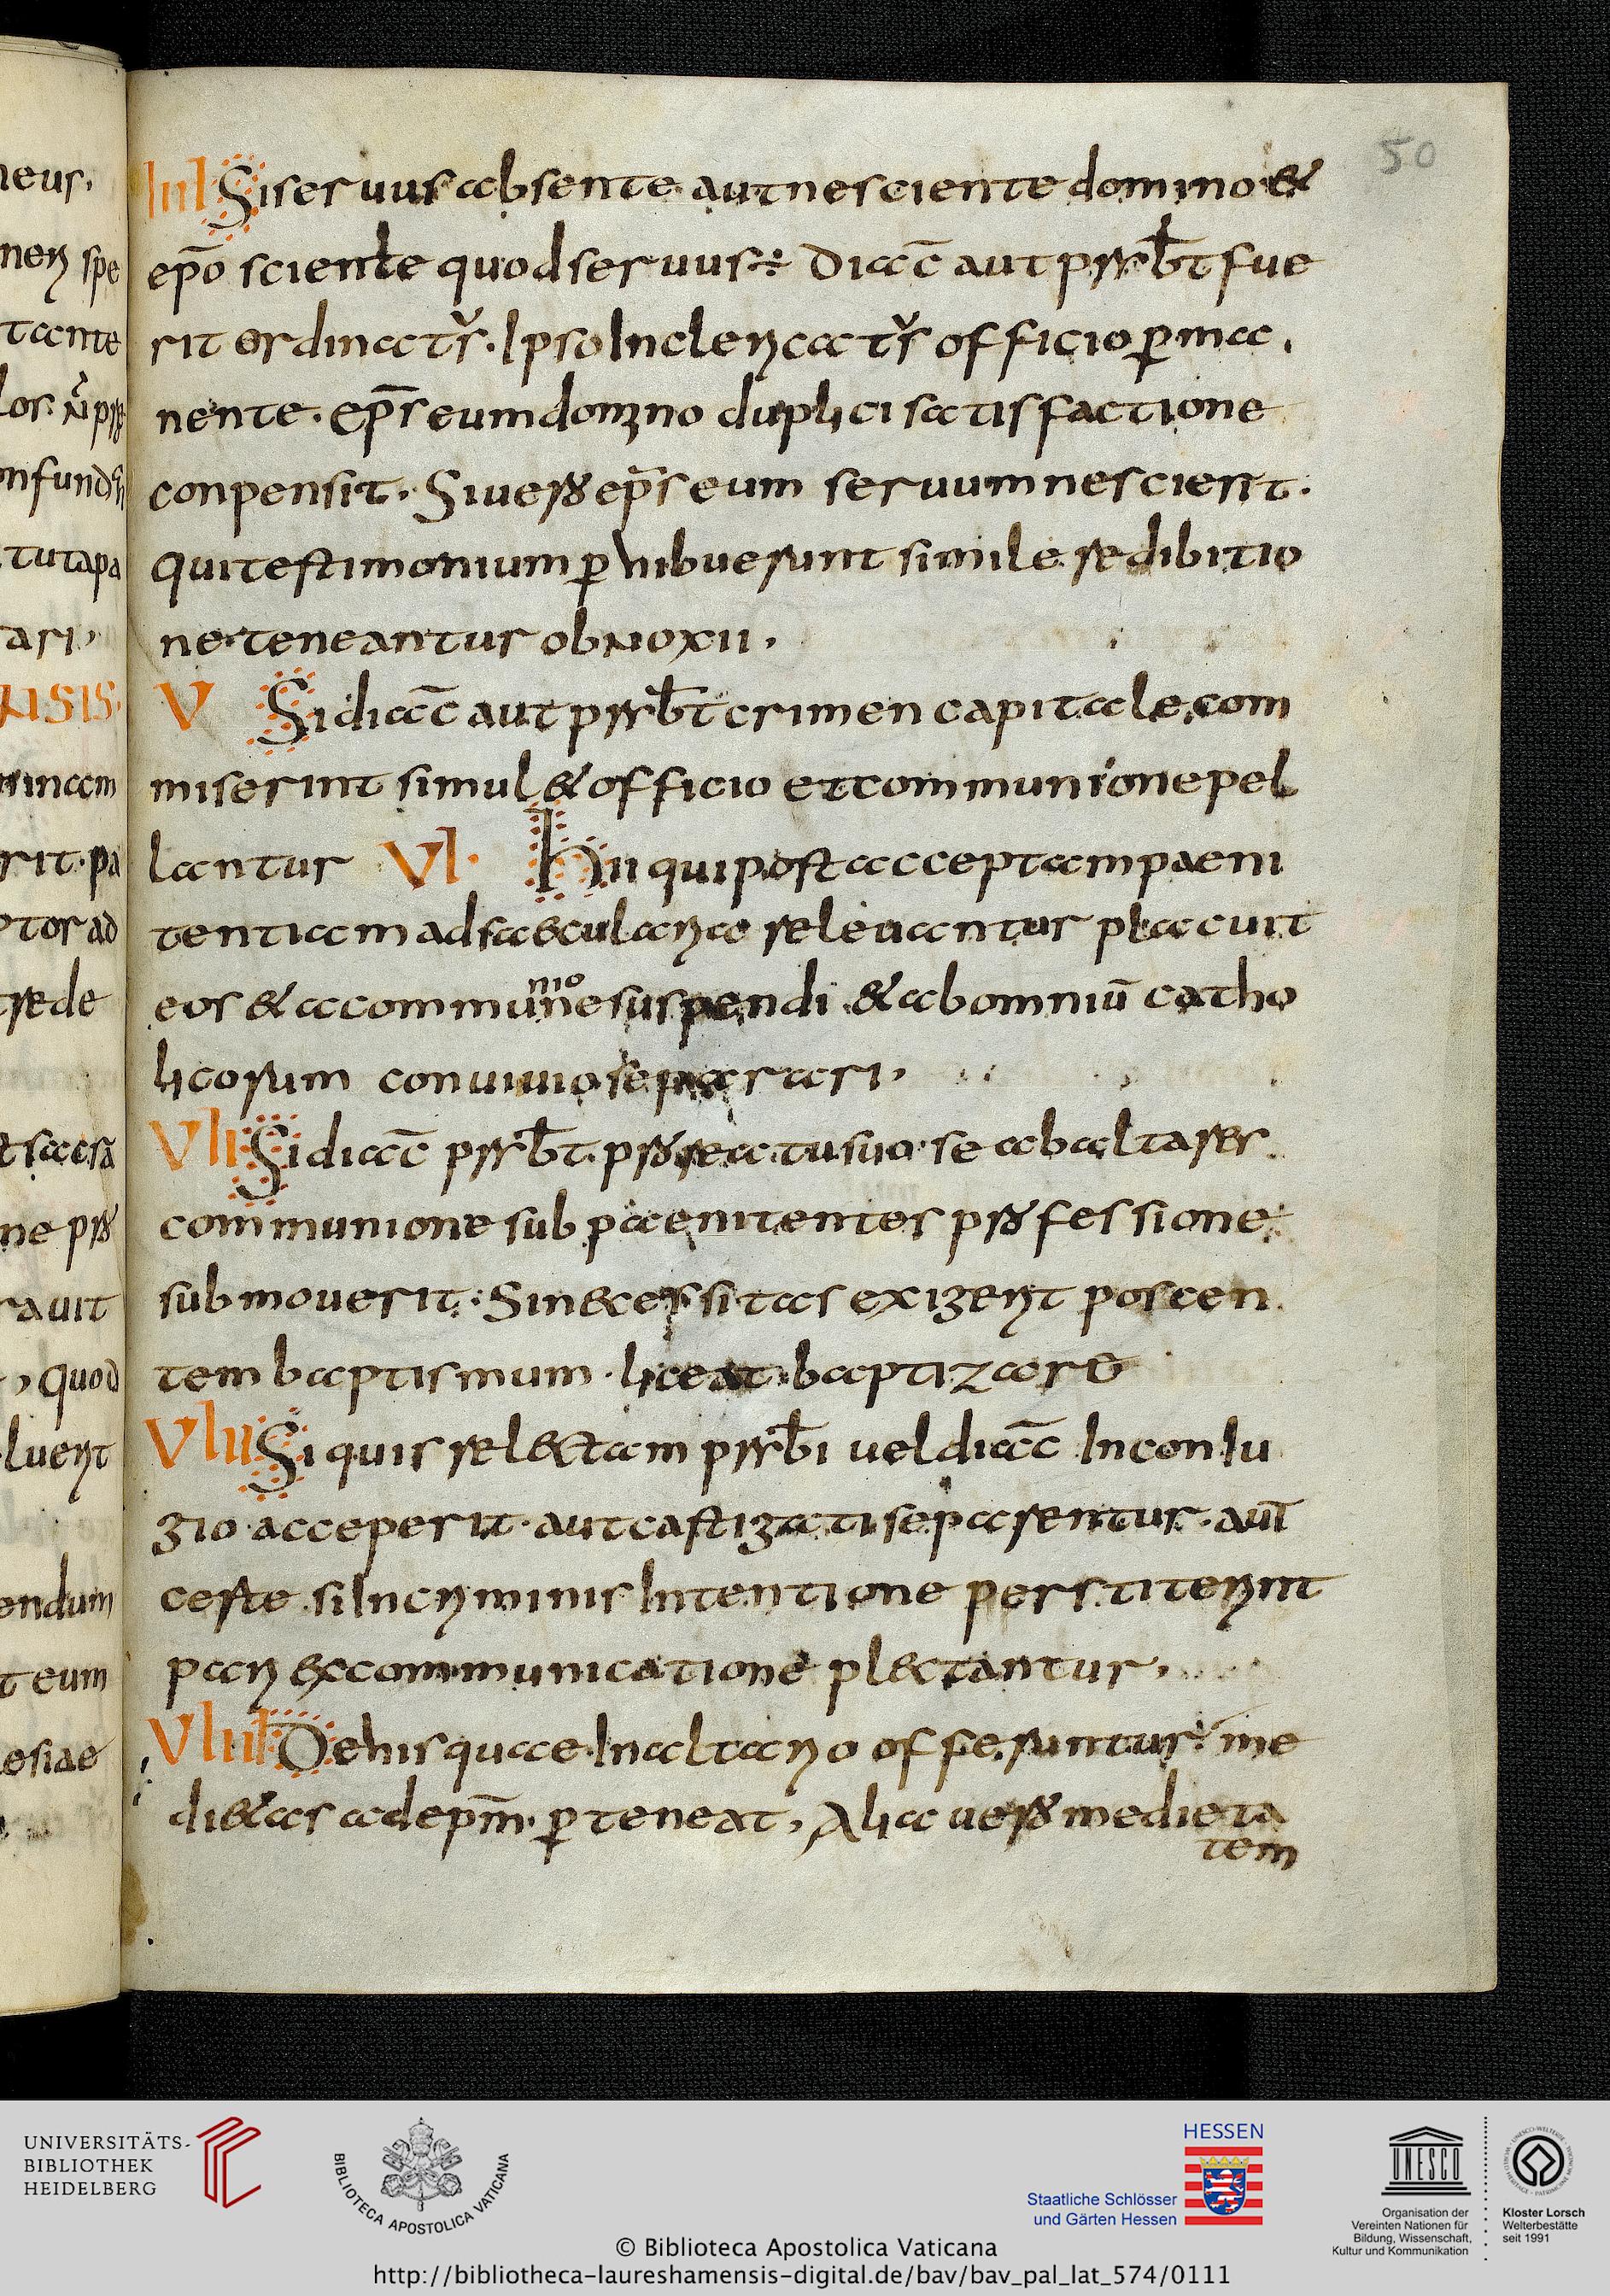 50
IIII Si seruus absente aut nesciente domino &
ep̄o sciente quod seruus÷ diac̄ aut prsb̄t fue
rit ordinatus. Ipso In clericatus officio ꝑma
nente. ep̄s eum domino duplici satisfactione
conpensit. Si uero ep̄s eum seruum nescierit.
qui testimonium ꝑhibuerunt simile redibitio
ne teneantur obnoxii,
V Si diac̄ aut prsb̄t crimen capitale com
miserint simul & officio et communione pel
lantur VI. Hii qui post acceptam paeni
tentiam ad saecularia releuantur placuit
eos & a commun\nio/e suspendi & ab omniū catho
licorum conuiuio separari,
VII Si diac̄ prsb̄t pro reatu suo se ab altares
communione sub paenitentes professione
submouerit. Si necessitas exigerit poscen
tem baptismum. liceat baptizare
VIII Si quis relectam prsb̄i uel diac̄ In coniu
gio acceperit. aut castigati separentur. aut
certe si In criminis Intentione perstiterint
pari excommunicatione plectantur,
VIIII De his quae In altario offeruntur me
di&as ad ep̄m. ꝑteneat, Alia uero medieta
tem
neus,
neri spe
tante
los.
tutapa
ari,
rit. pa
tor ad
rede
ne pro
rauit
, quod
luerit
endum
t eum
esiae
UNIVERSITÄTS-
BIBLIOTHEK
HEIDELBERG
BIBLIOTECA APOSTOLICA VATICANA
HESSEN
Staatliche Schlösser
und Gärten Hessen
UNESCO
Organisation der
Vereinten Nationen für
Bildung, Wissenschaft,
Kultur und Kommunikation
Kloster Lorsch
Welterbestätte
seit 1991
© Biblioteca Apostolica Vaticana
http://bibliotheca-laureshamensis-digital.de/bav/bav_pal_lat_574/0111